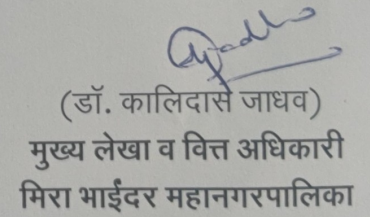 (डॉ. कालिदास जाधव)
मुख्य लेखा व वित्त अधिकारी
मिरा भाईंदर महानगरपालिका